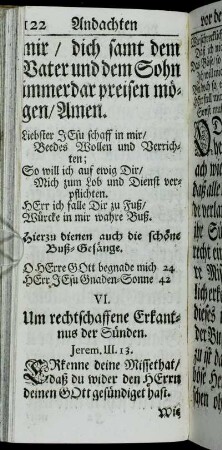 122 Andachten
mir / dich samt dem
Vater und dem Sohn
immerdar preisen mö-
gen / Amen.
Liebster JEsu schaff in mir /
Beedes Wollen und Verrich-
ten;
So will ich auf ewig Dir /
Mich zum Lob und Dienst ver-
pflichten.
HErr ich falle Dir zu Fuß /
Würcke in mir wahre Buß.
Hierzu dienen auch die schöne
Buß-Gesänge.
O HErre GOtt begnade mich 24
HErr JEsu Gnaden-Sonne 42
VI.
Um rechtschaffene Erkänt-
nus der Sünden.
Jerem. III. 13.
ERkenne deine Missethat /
daß du wider den HErrn
deinen GOtt gesündiget hast.
Wie